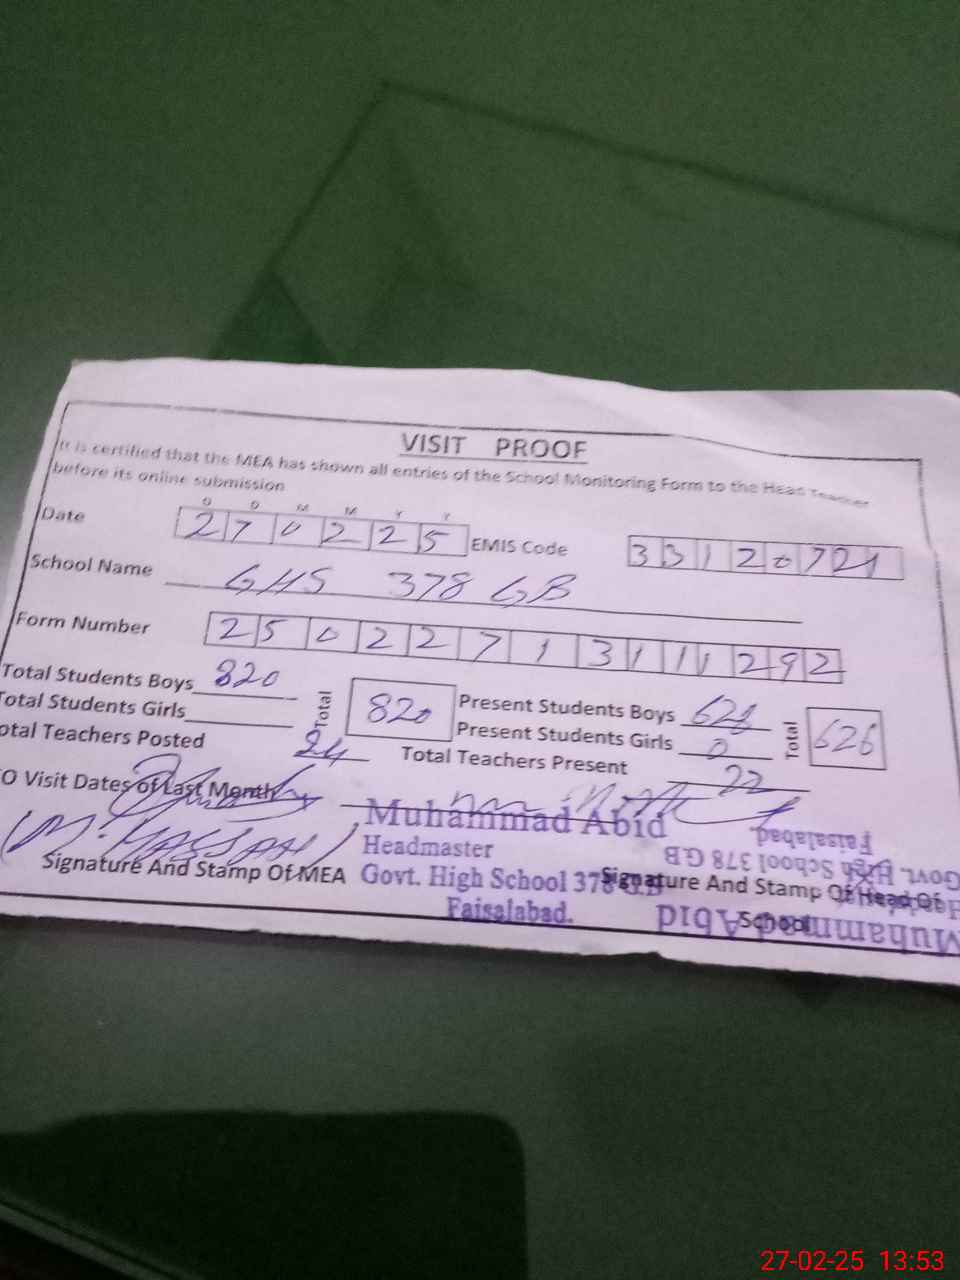 VISIT PROOF
It is certified that the MEA has shown all entries of the School Monitoring Form to the Head Teacher
before its online submission
D D M M Y Y
Date 270225 EMIS Code 33120721
School Name GHS 378 GB
Form Number 2502271311292
Total Students Boys 820 Total 820 Present Students Boys Total 626
Total Students Girls Present Students Girls 0
otal Teachers Posted 24 Total Teachers Present 22
O Visit Dates of Last Month
(M. HASSAN)
Muhammad Abid
Headmaster
Govt. High School 378 G.B
Faisalabad.
Signature And Stamp Of MEA
Signature And Stamp Of Head Of
School
Muhammad Abid
Govt. High School 378 G.B
Faisalabad.
27-02-25 13:53